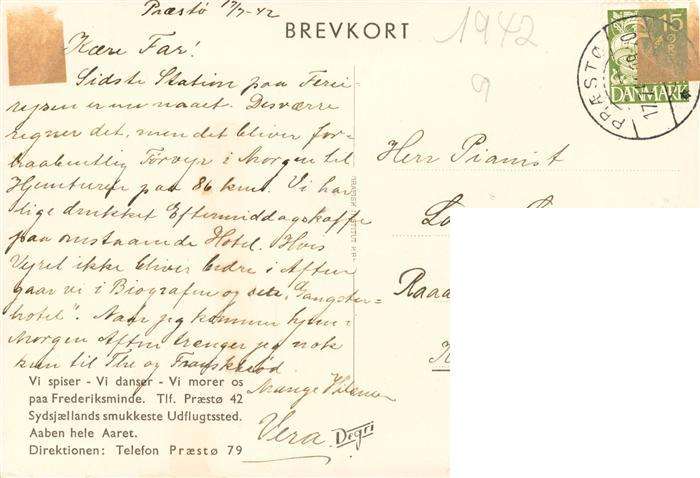 Præstø 17/7-42
BREVKORT
1942
9
Kære Far!
Sidste Station paa Ferie-
rejsen er nu naaet. Desværre
regner det, men det bliver for-
haabentlig Tørvejr i Morgen til
Hjemturen paa 86 km. Vi har
lige drukket Eftermiddagskaffe
paa omstaaende Hotel. Hvis
Vejret ikke bliver bedre i Aften
gaar vi i Biografen og "Gangster-
hotel". Naar jeg kommer hjem
Morgen Aften trænger jeg nok
kun til The og Franskbrød
Mange Hilsner
Vera
Vi spiser - Vi danser - Vi morer os
paa Frederiksminde. Tlf. Præstø 42
Sydsjællands smukkeste Udflugtssted.
Aaben hele Aaret.
Direktionen: Telefon Præstø 79
15
ØRE
DANMARK
PRÆSTØ
17
Herr Pianist